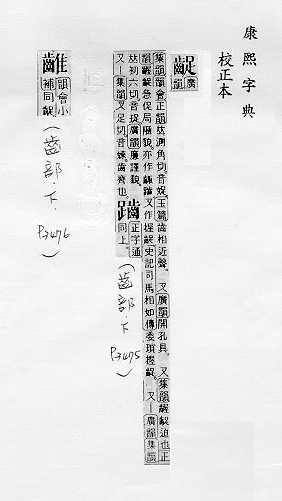 康熙字典
校正本
齪 廣韻
集韻韻會正韻𠀤測角切音娖玉篇齒相近聲 又廣韻開孔具 又集韻齷齪迫也正
韻齷齪急促局陿貌亦作齱齵又作握齪史記司馬相如傳委瑣握齪 又廣韻集韻
𠀤初六切音珿廣韻廉謹貌
又集韻叉足切音娕齒齊也
正字通
同上
(齒部.下
P.2475)
韻會小
補同齪
(齒部.下
P.2476)